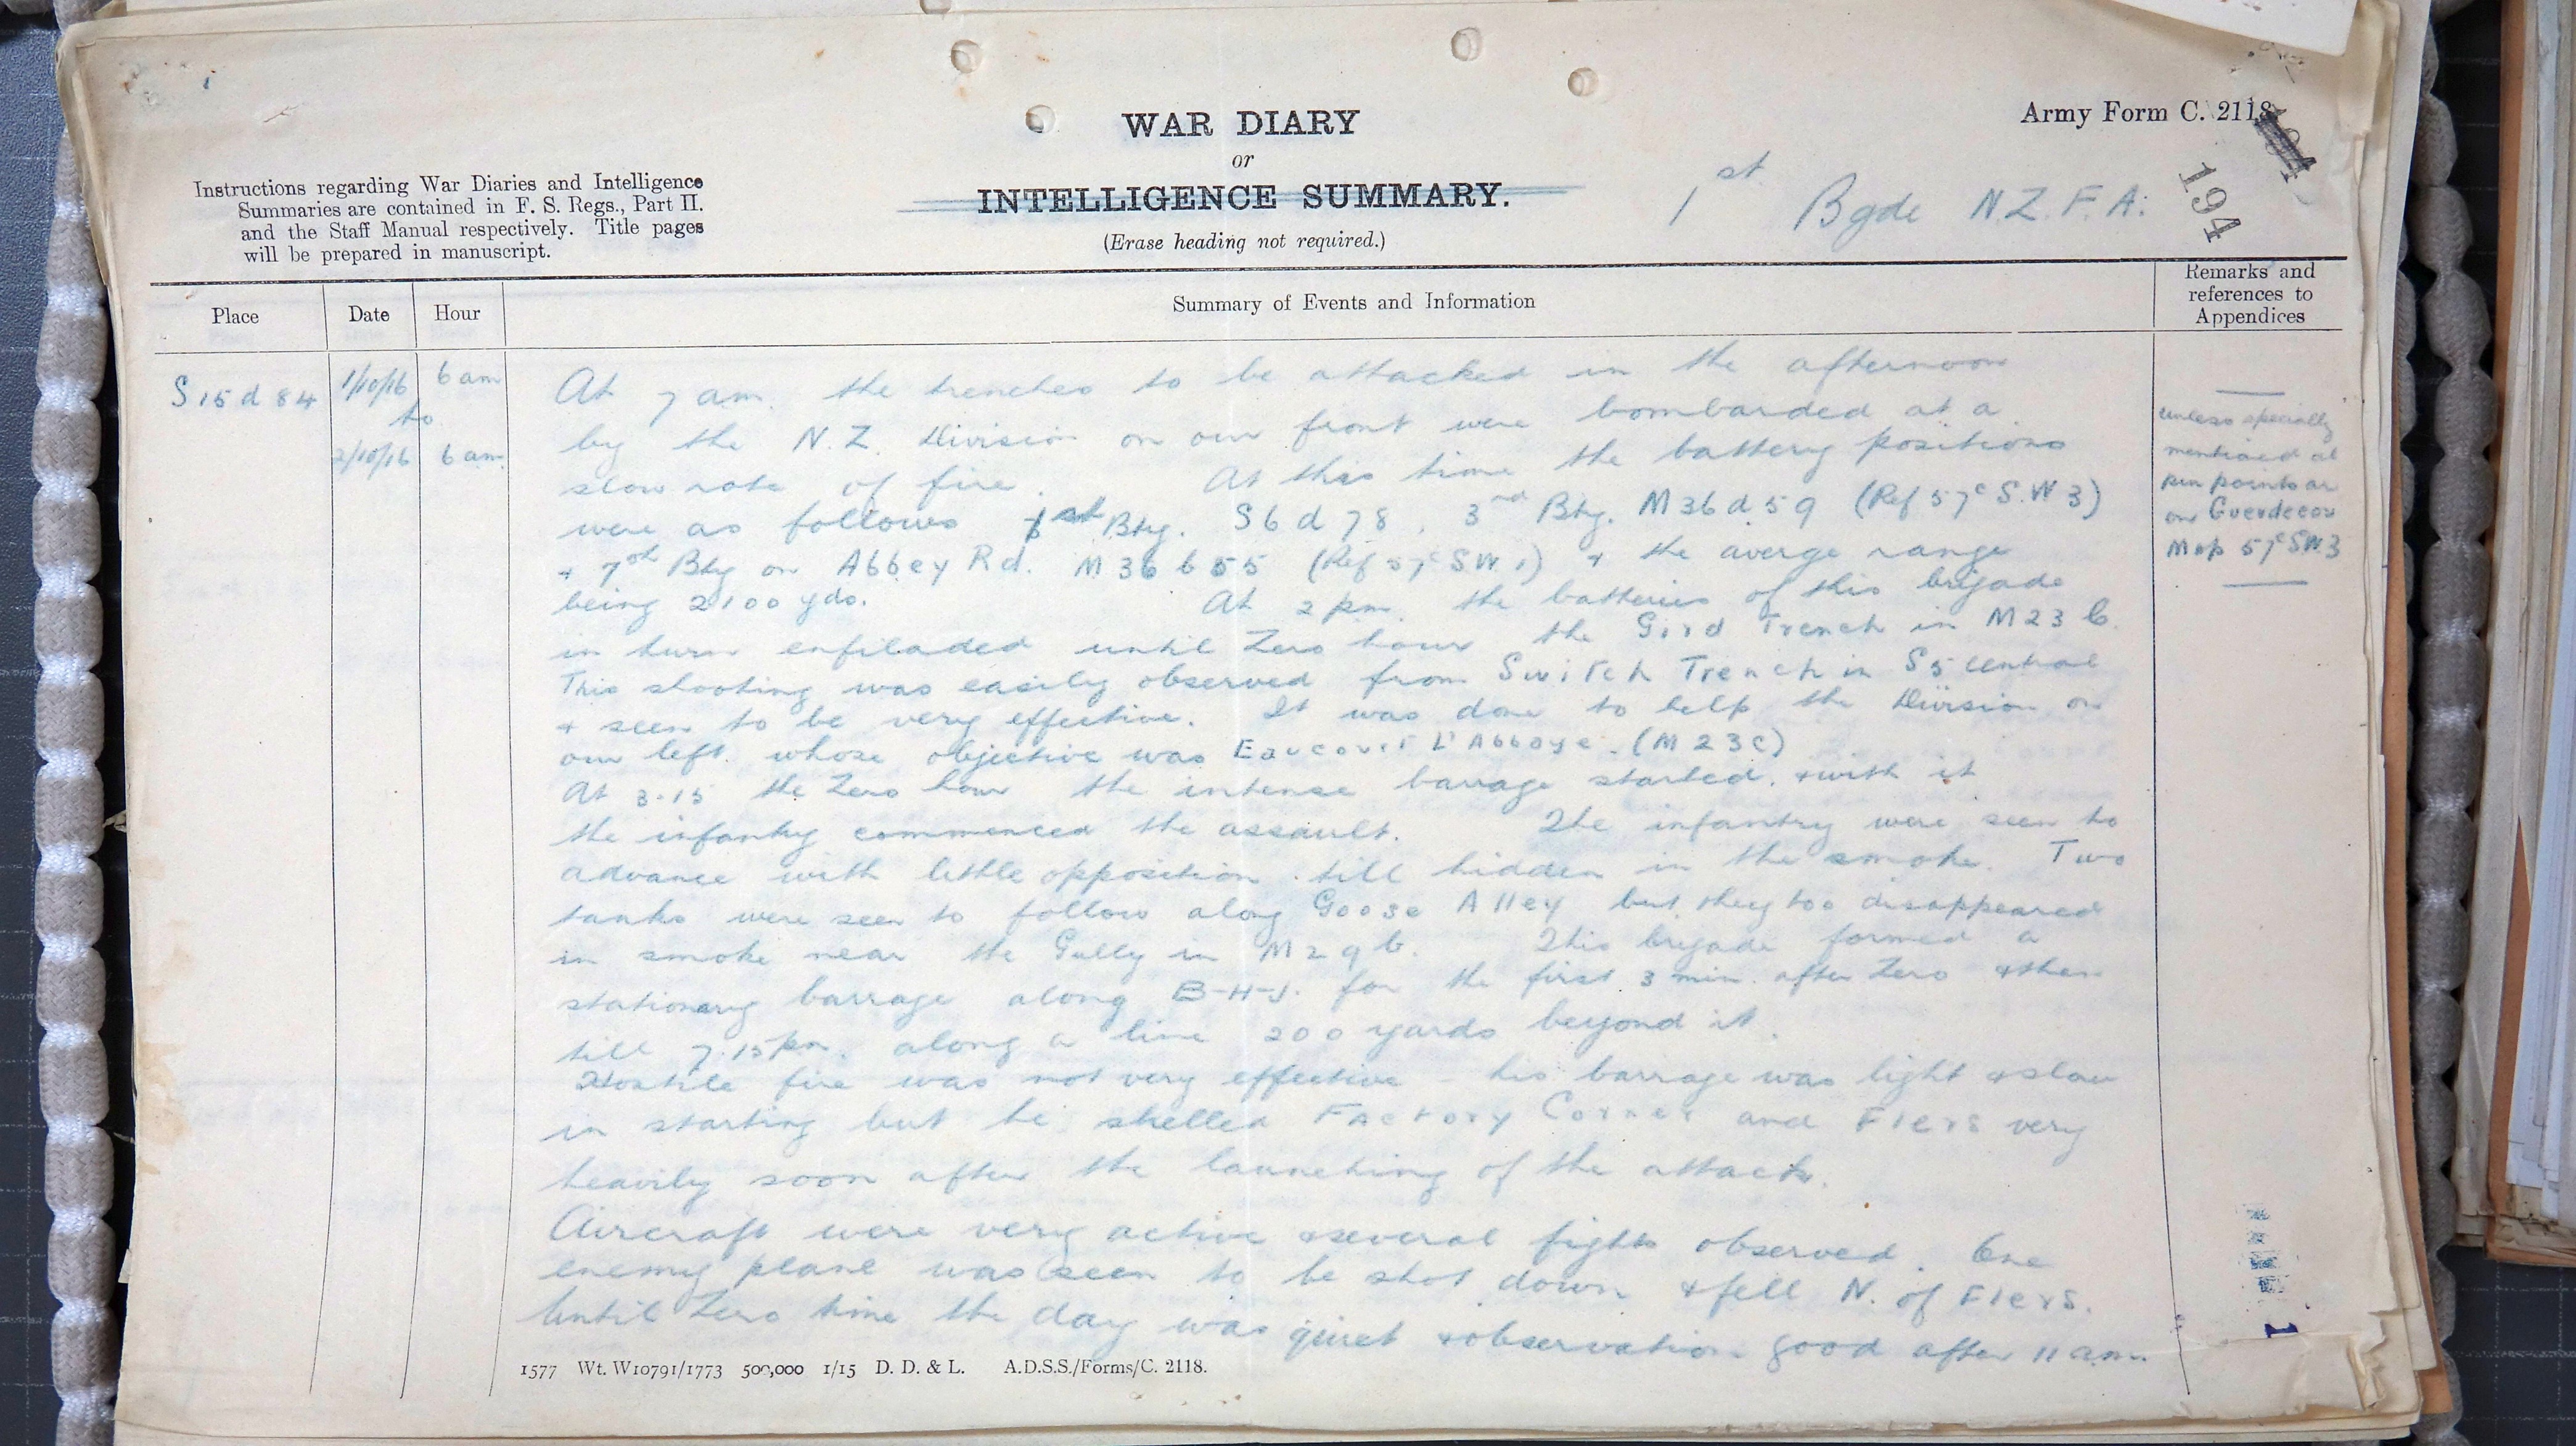 Army Form C. 2118
194
WAR DIARY
or
INTELLIGENCE SUMMARY.
(Erase heading not required.)
1st Bgde N.Z.F.A.
Instructions regarding War Diaries and Intelligence
Summaries are contained in F. S. Regs., Part II.
and the Staff Manual respectively. Title pages
will be prepared in manuscript.
Place
Date
Hour
Summary of Events and Information
Remarks and
references to
Appendices
S 15 d 84
1/10/16
to
2/10/16
6 am
6 am.
At 7 am. the trenches to be attacked in the afternoon
by the N.Z. Division on our front were bombarded at a
slow rate of fire. At this time the battery positions
were as follows 1st Bty. S6d78. 3rd Bty. M36d.59 (Ref 57c S.W 3)
+ 7th Bty on Abbey Rd. M36b55 (Ref 57c SW.1) + the averge range
being 2100 yds. At 2 pm. the batteries of this brigade
in turn enfiladed until Zero hour the Gird Trench in M23b.
This shooting was easily observed from Switch Trench in S5 central
+ seen to be very effective. It was done to help the Division on
our left. whose objective was Eaucourt L'Abbaye. (M23c)
At 3.15 the Zero hour the intense barrage started. + with it
the infantry commenced the assault. The infantry were seen to
advance with little opposition till hidden in the smoke. Two
tanks were seen to follow along Goose Alley but they too disappeared
in smoke near the Gully in M29b. This brigade formed a
stationary barrage along B-H-J. for the first 3 min. after Zero + then
till 7.15 pm. along a line 200 yards beyond it.
Hostile fire was not very effective - his barrage was light + slow
in starting but he shelled Factory Corner and Flers very
heavily soon after the launching of the attack.
Aircraft were very active + several fights observed. One
enemy plane was seen to be shot down + fell N. of Flers.
Until Zero time the day was quiet + observation good after 11 am.
unless specially
mentioned al
pin points are
on Guedecou
Map 57c SW.3
1577 Wt. W10791/1773 500,000 1/15 D. D. & L. A.D.S.S./Forms/C. 2118.
1